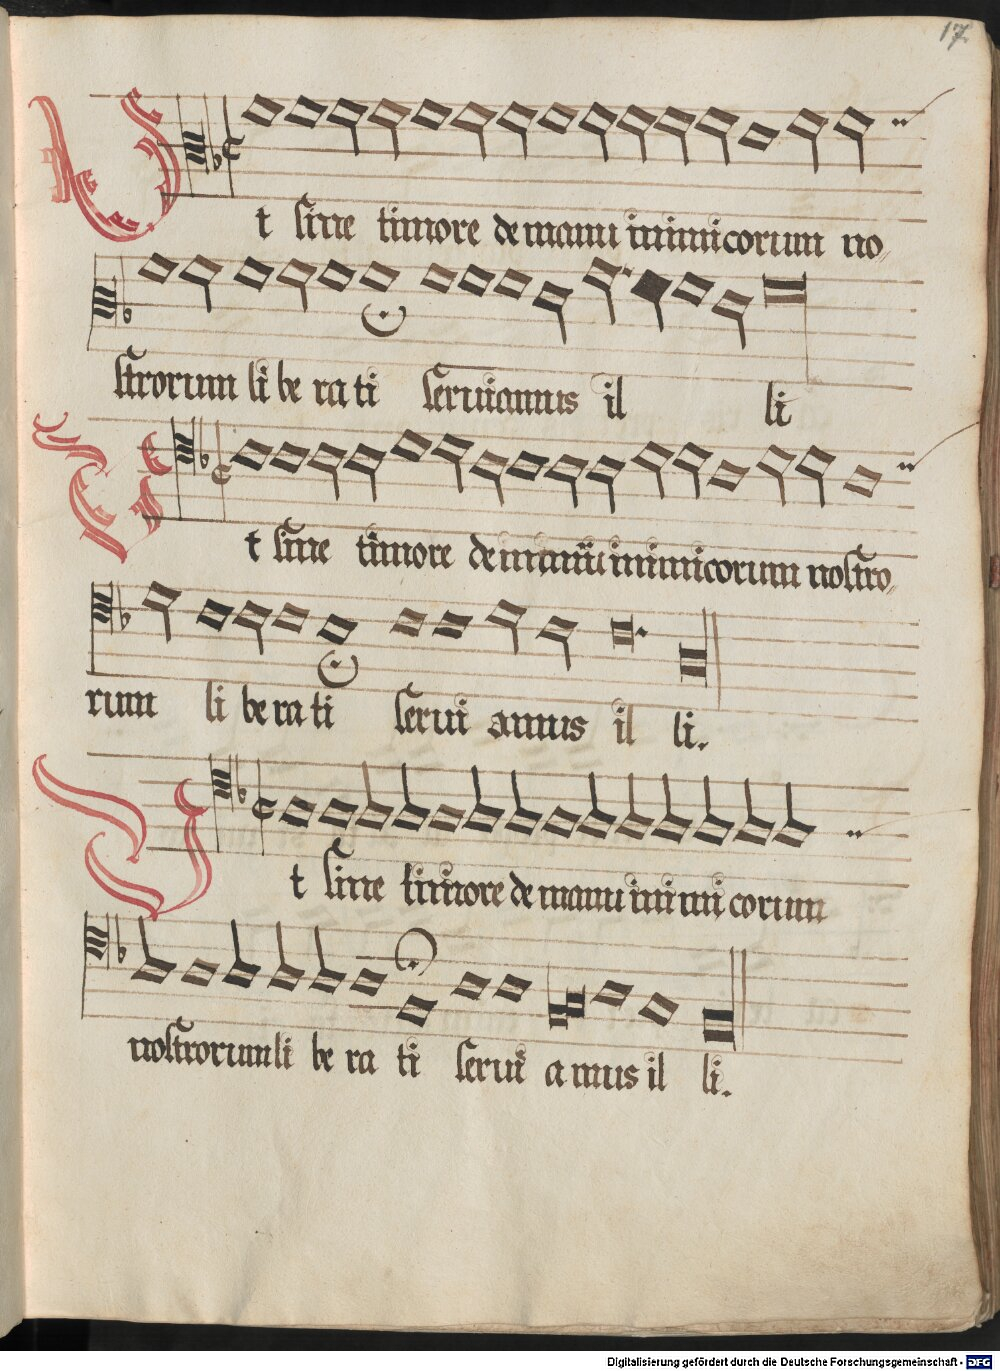 17.
Ut sine timore de manu inimicorum no
strorum li be ra ti seruiamus il li
Ut sine timore de manu inimicorum nostro
rum li be ra ti serui amus il li.
Ut sine timore de manu ini mi corum
nostrorum li be ra ti serui a mus il li.
Digitalisierung gefördert durch die Deutsche Forschungsgemeinschaft - DFG